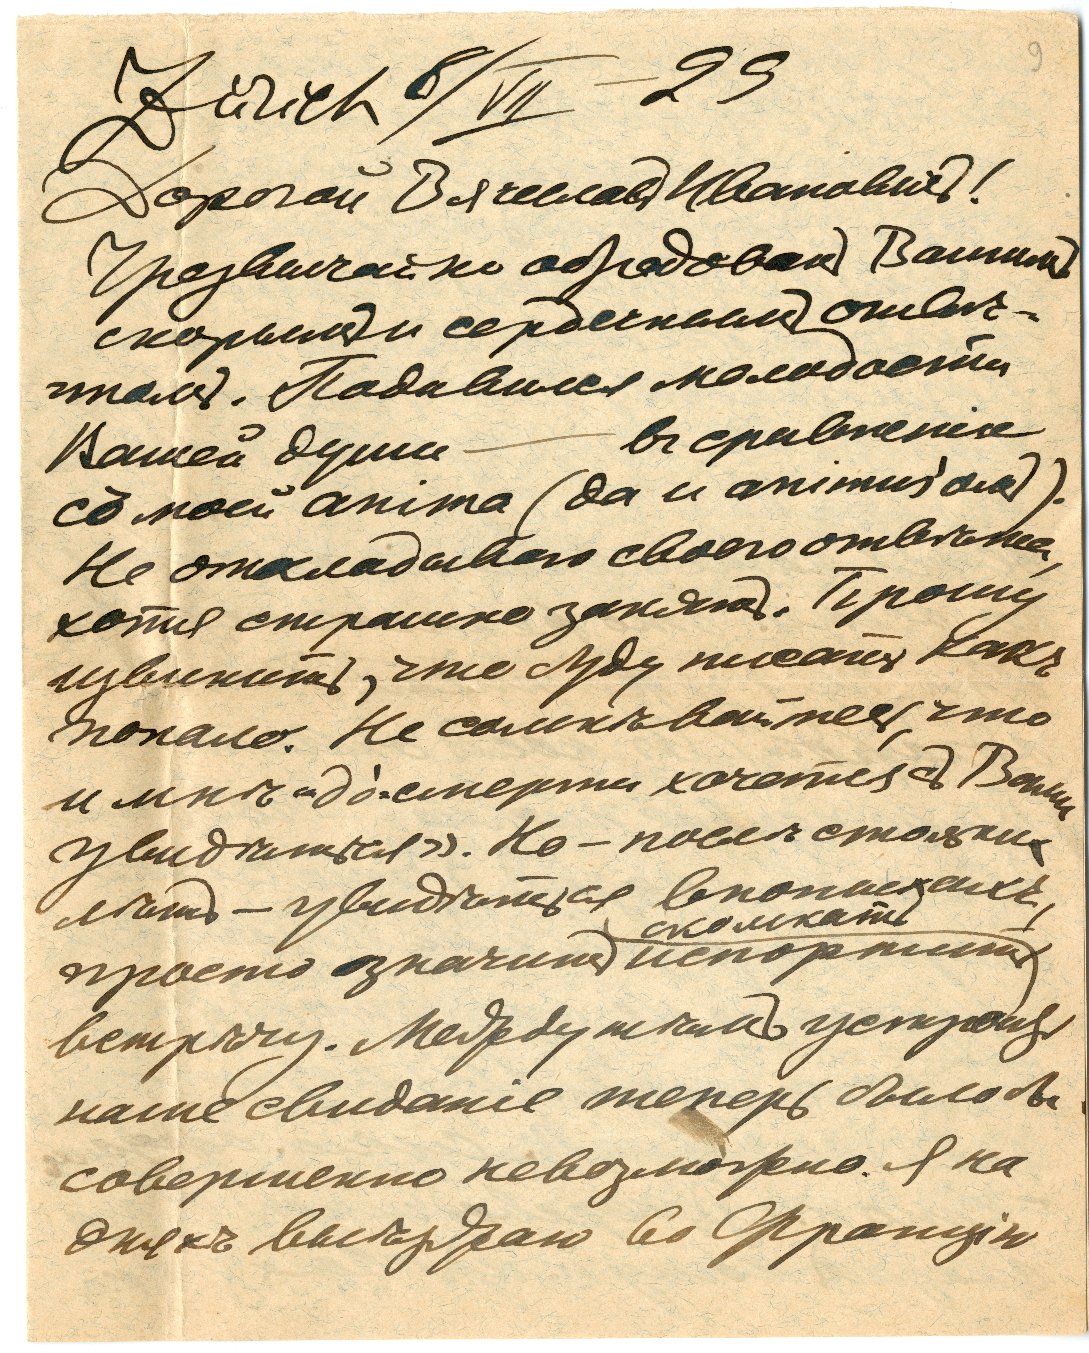 9
Zürich 8/VII – 29
Дорогой Вячеславъ Ивановичъ!
Чрезвычайно обрадованъ Вашимъ
скорымъ и сердечнымъ отвѣ-
томъ. Подивился молодости
Вашей души — въ сравненіи
съ моей anima (да и animus'омъ).
Не откладываю своего отвѣта,
хотя страшно занятъ. Прошу
извинить, что буду писать какъ
попало. Не сомнѣвайтесь, что
и мнѣ «до смерти хочется съ Вами
увидѣться». Но – послѣ столькихъ
лѣтъ – увидѣться впопыхахъ,
скомкать
просто значитъ испортить
встрѣчу. Между тѣмъ устроить
наше свиданіе теперь было бы
совершенно невозможно. Я на
дняхъ выѣзжаю во Францію